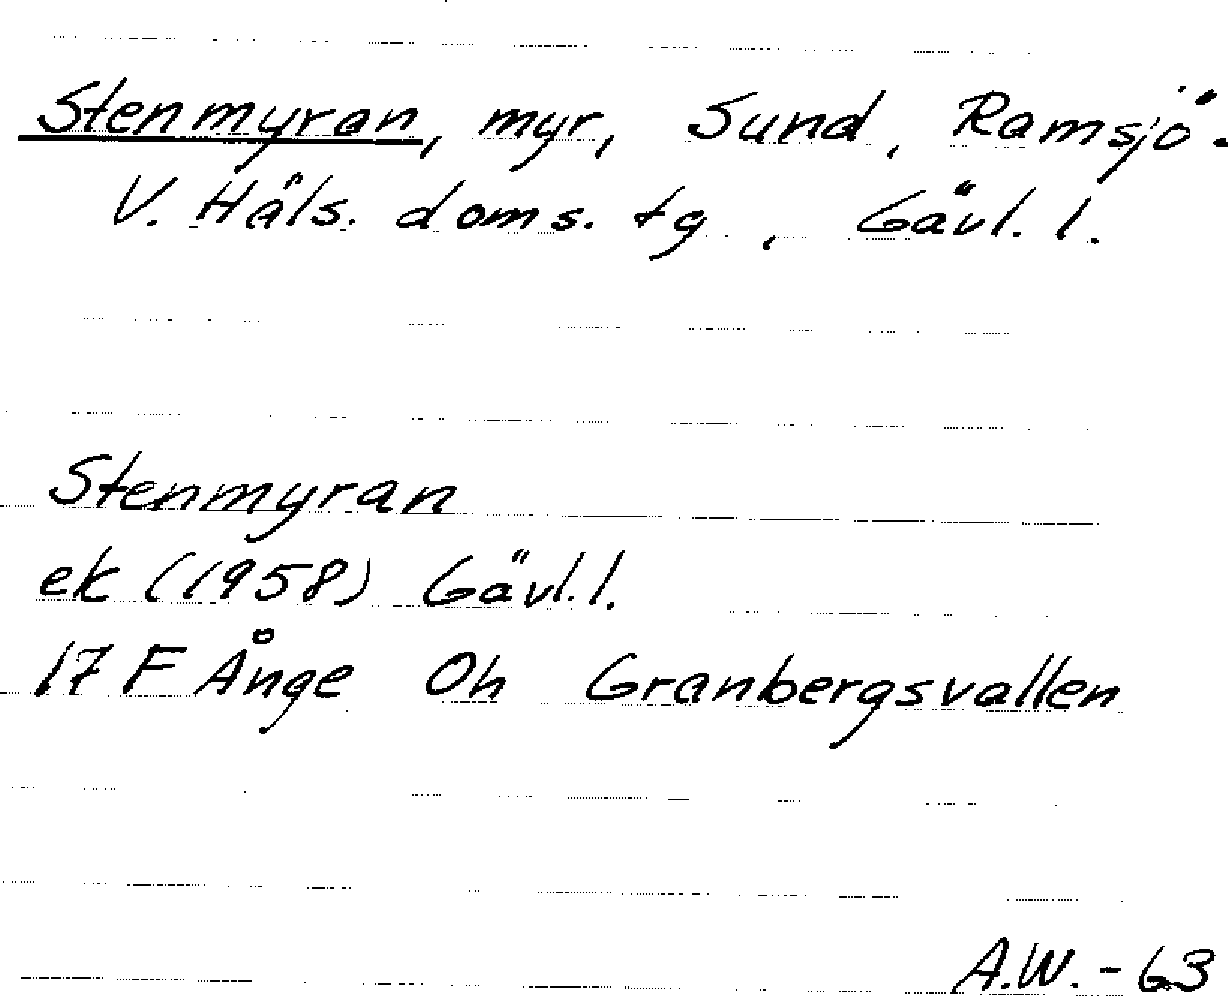 Stenmyran, myr, Sund, Ramsjö.
V. Häls. doms. tg, Gävl. l.
Stenmyran
ek (1958) Gävl. l.
17 F Ånge Oh Granbergsvallen
A.W. - 63